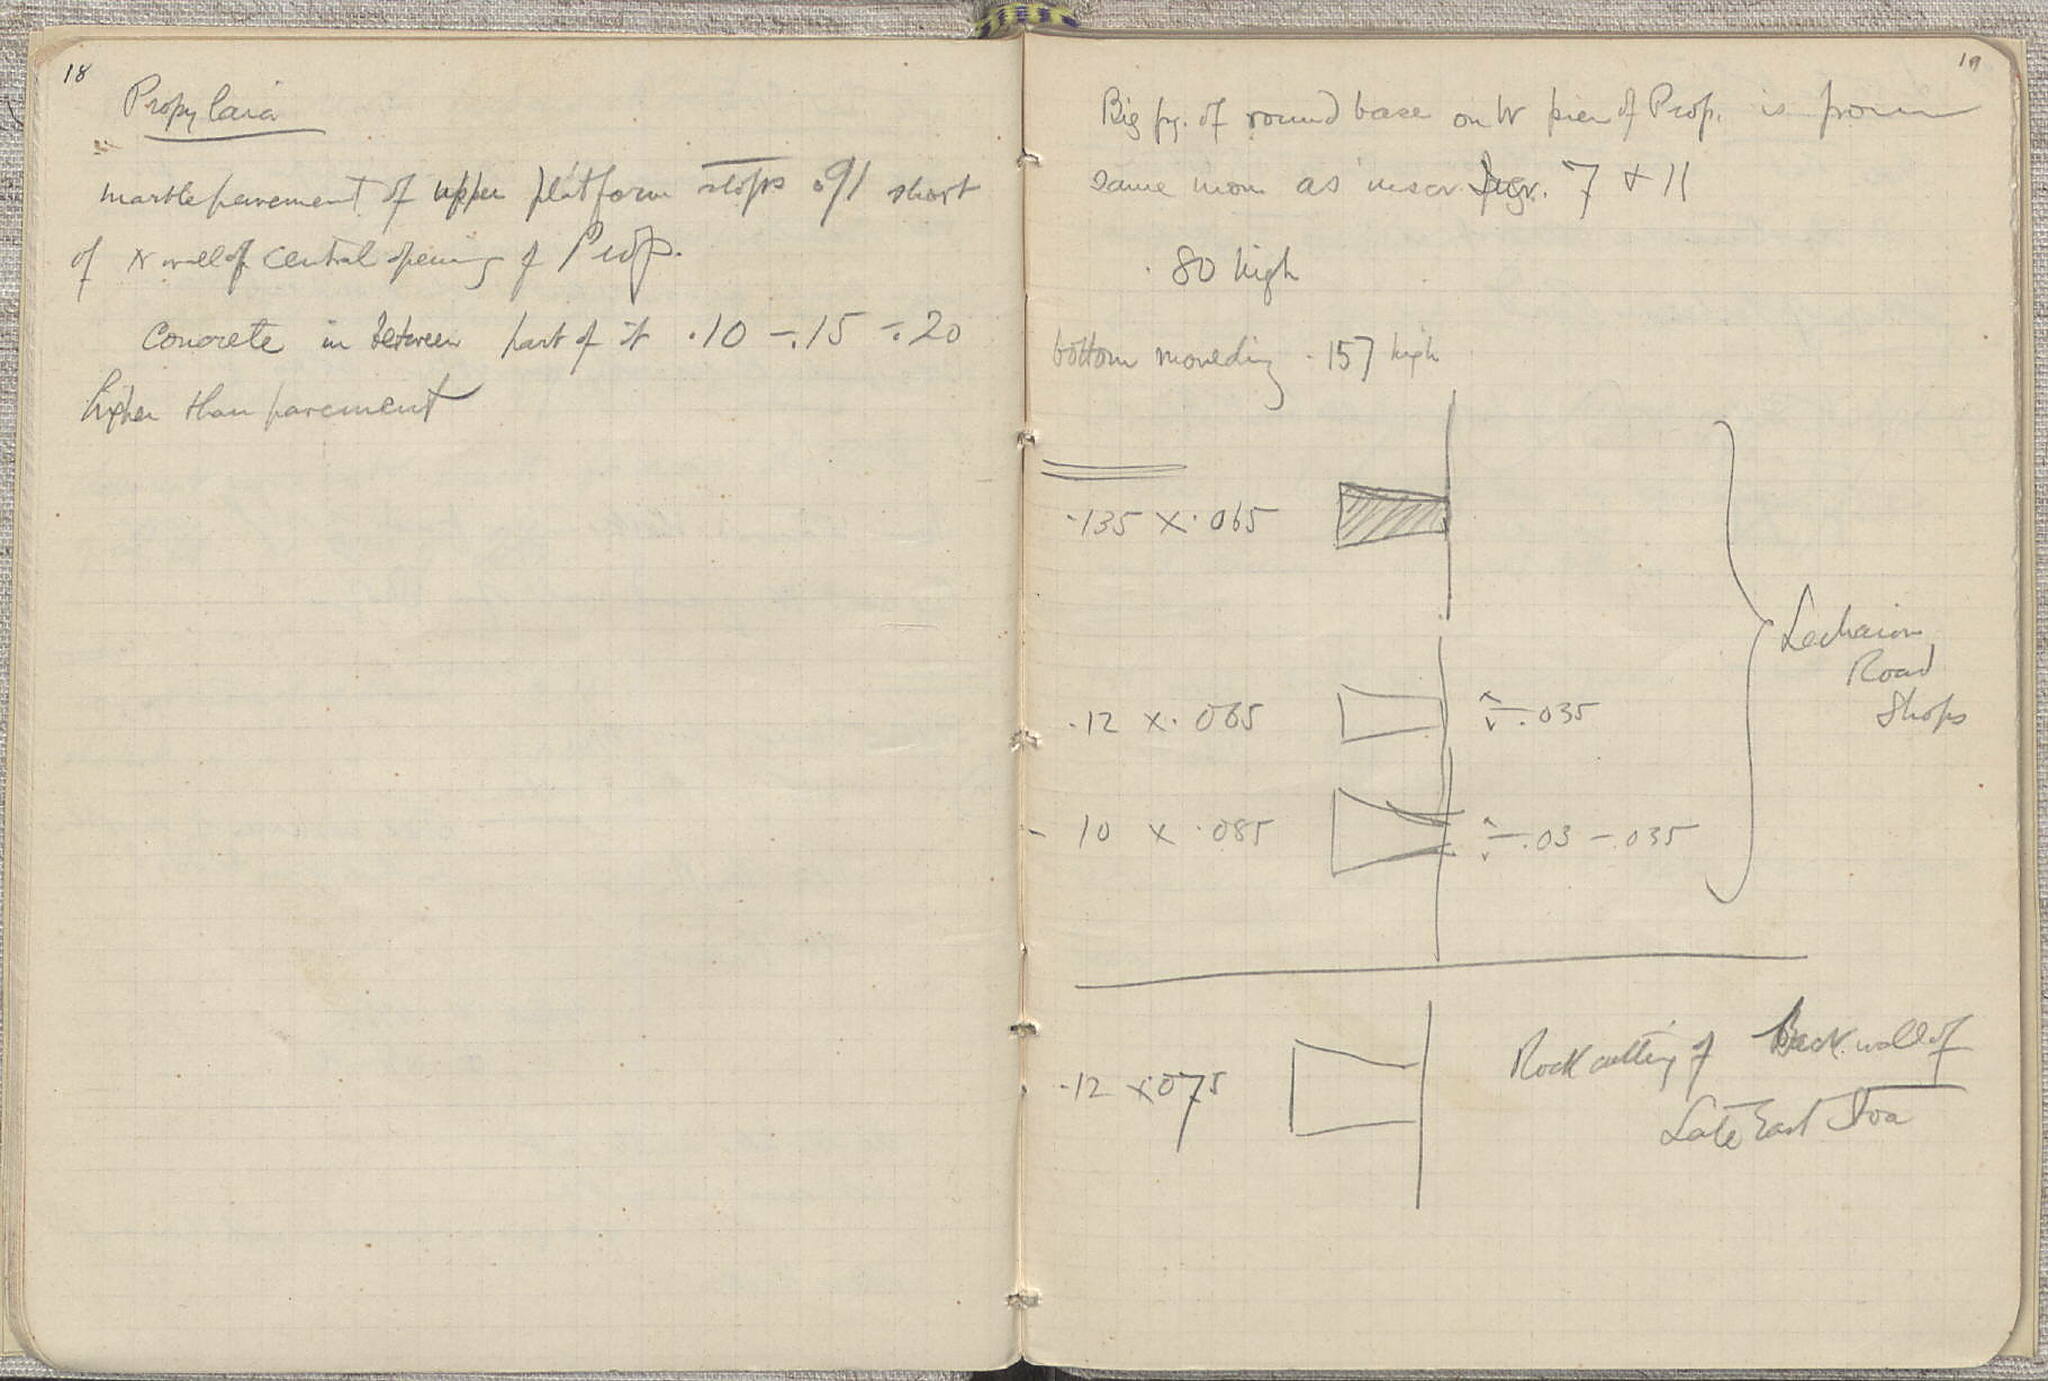 18
Propylaia
marble pavement of upper platform stops .91 short
of wall of central opening of Prop.
Concrete in between part of it .10 – .15 – .20
higher than pavement
19
Big fr. of round base on W pier of Prop. is from
same mon as inscr. 7 + 11
.80 high
bottom moulding .157 high
.135 x .065
.12 x .065 .035
.10 x .085 .03 – .035
Lechaion
Road
Shops
.12 x .075
Rock cutting of Back wall of
Late East Stoa